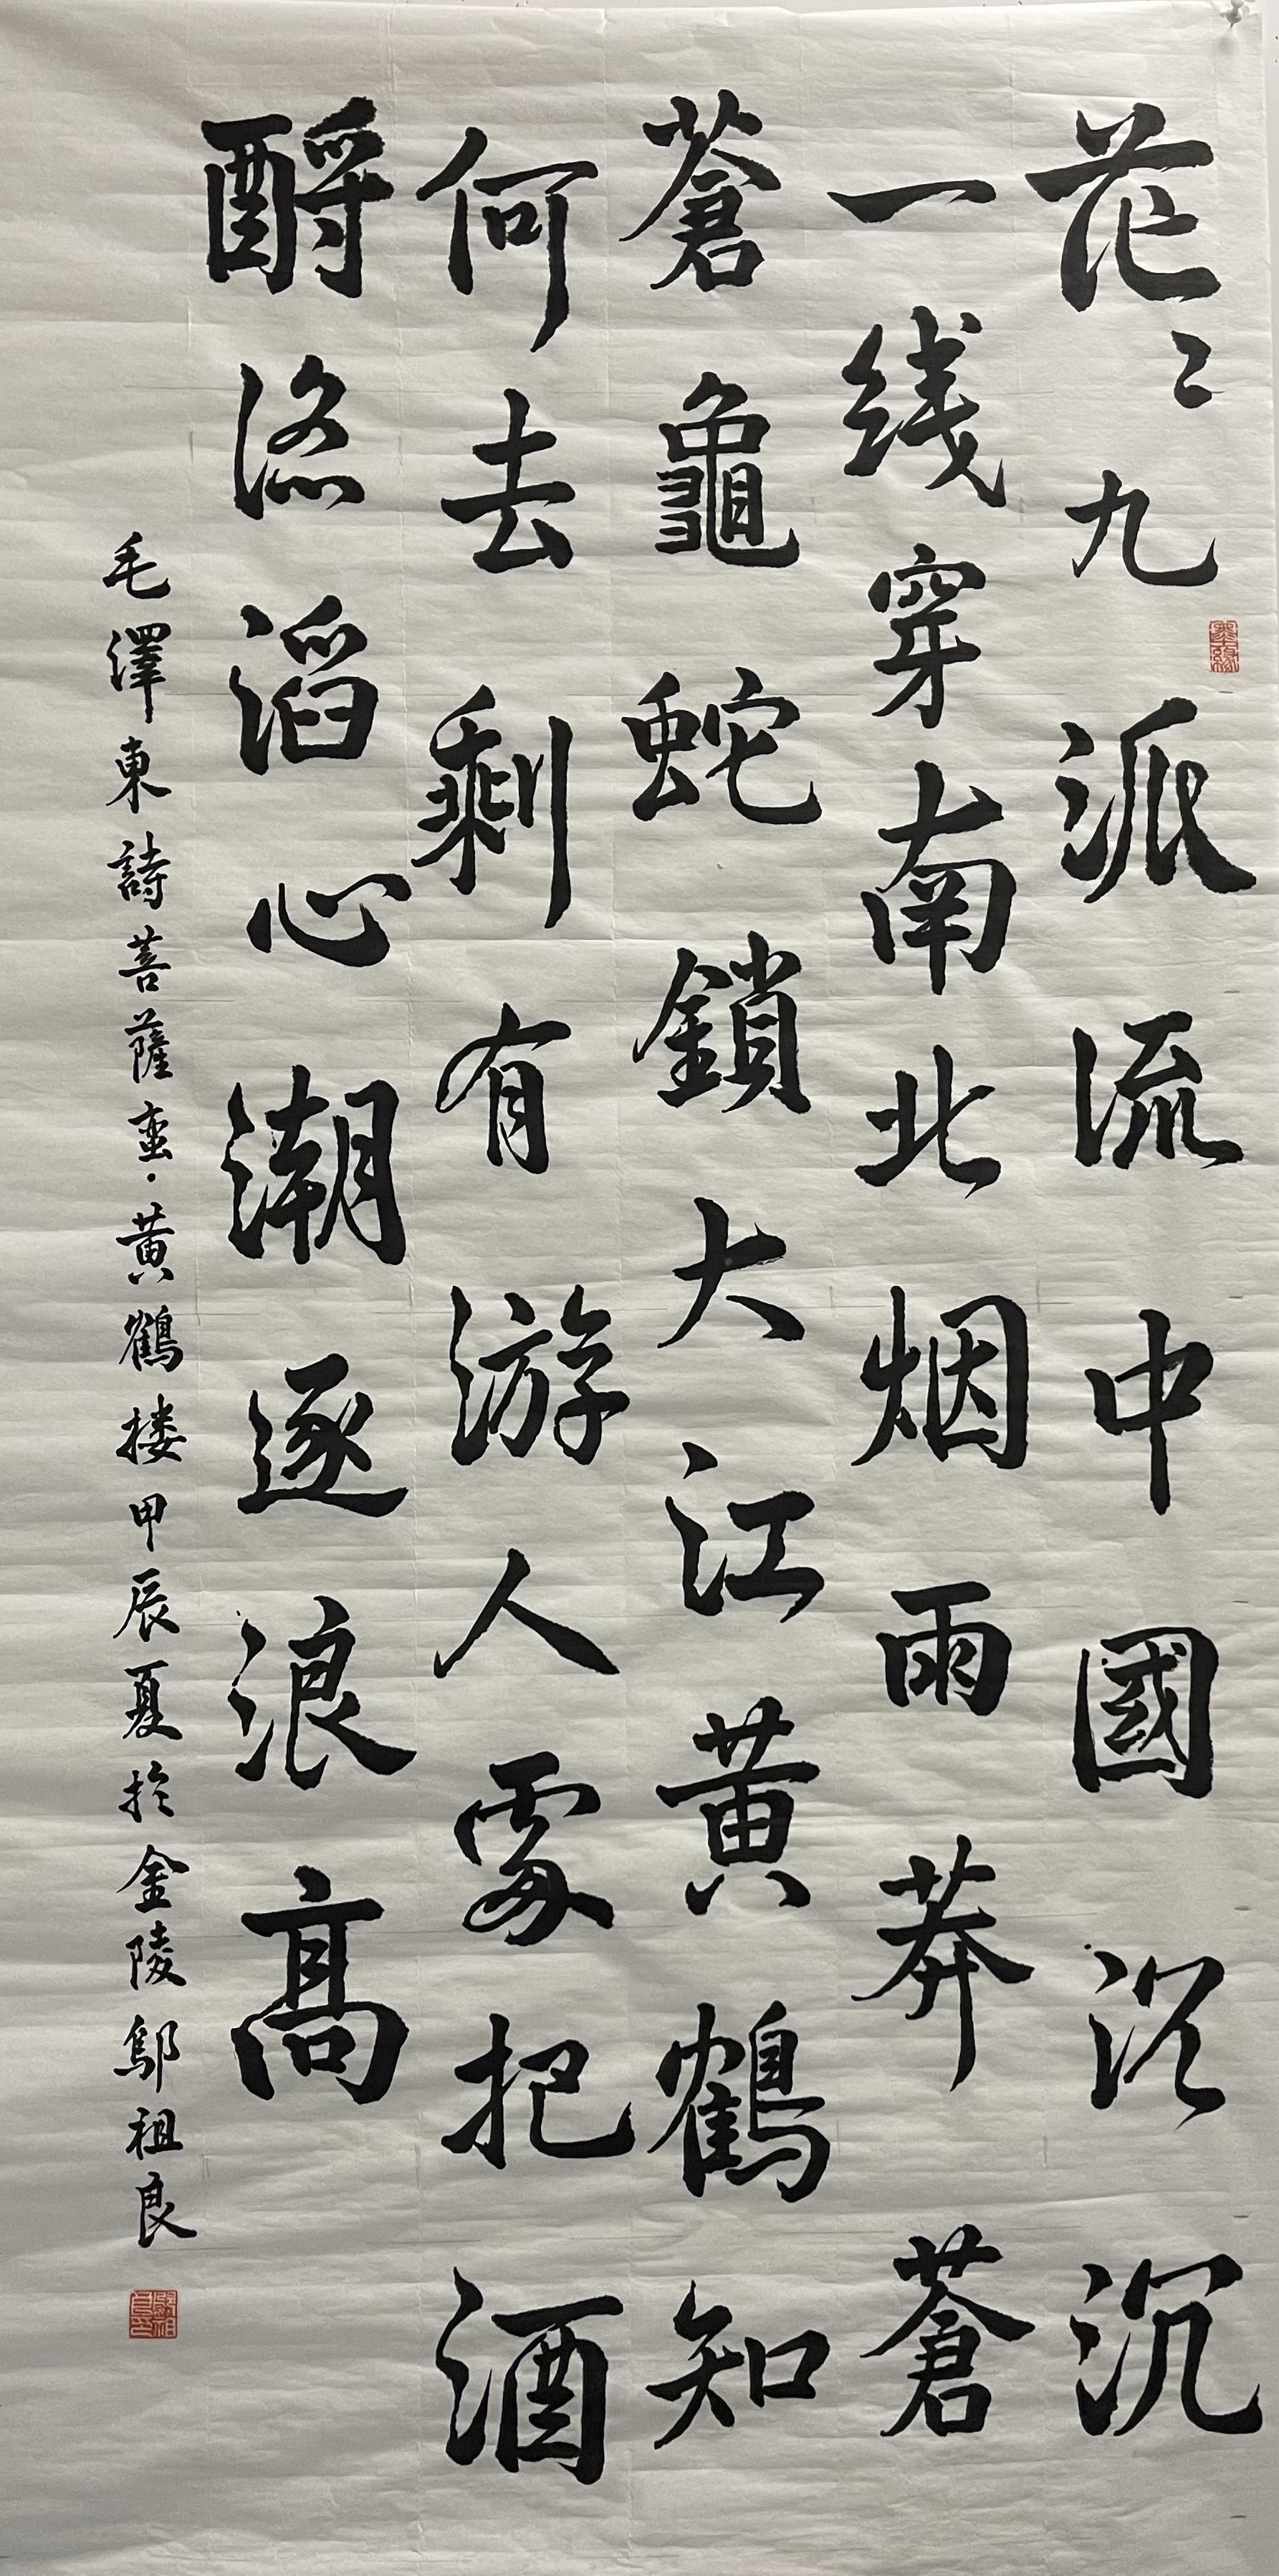 茫〻九派流中國沉沉
一线穿南北烟雨莽蒼
蒼龜蛇鎖大江黄鶴知
何去剩有游人處把酒
酹滔滔心潮逐浪高
毛澤東詩菩薩蛮·黄鶴楼甲辰夏於金陵鄔祖良
墨緣